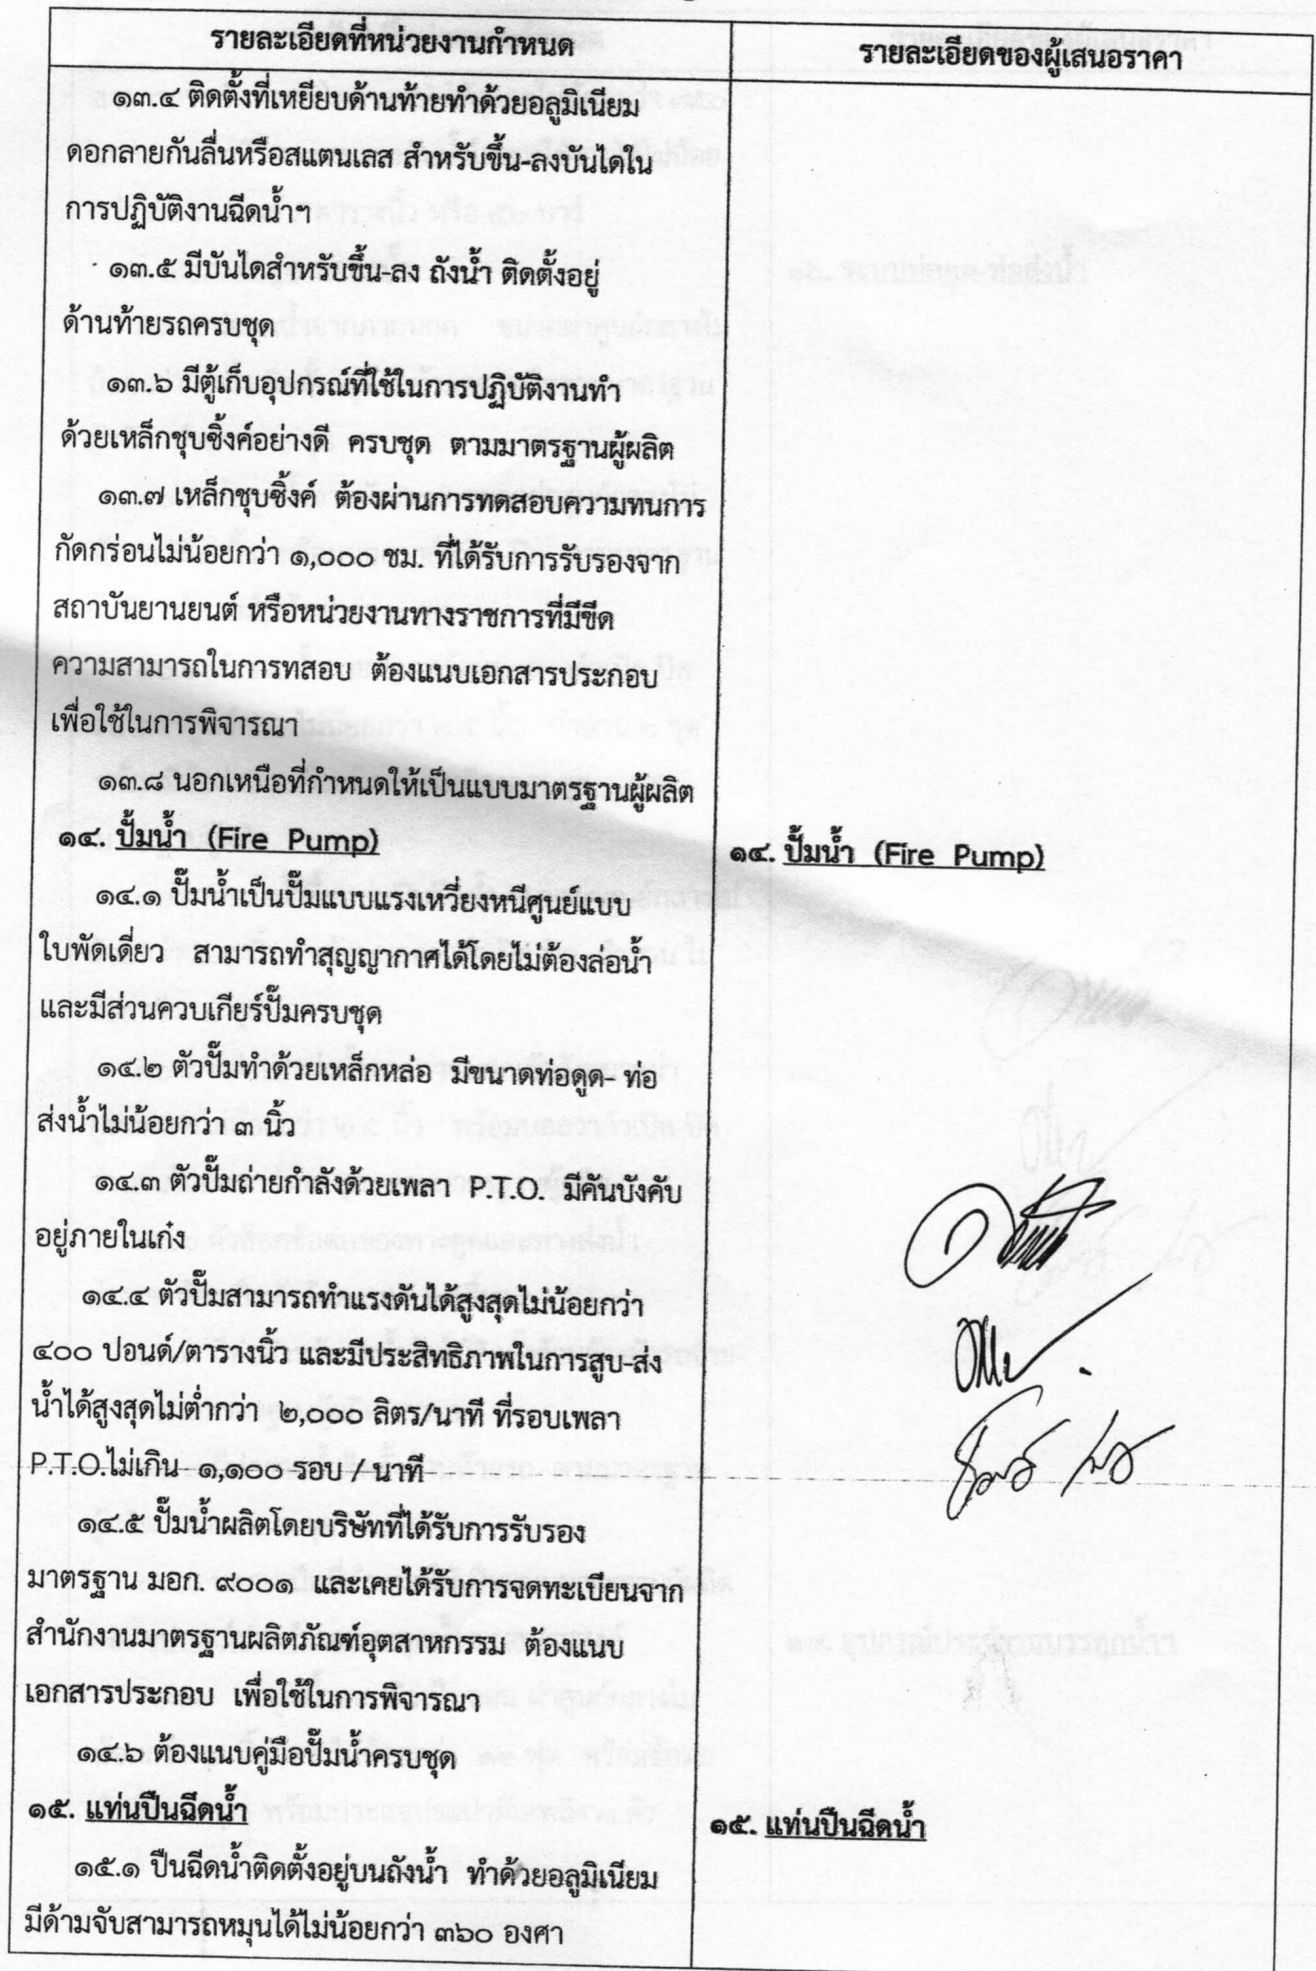 รายละเอียดที่หน่วยงานกำหนด
รายละเอียดของผู้เสนอราคา
๑๓.๔ ติดตั้งที่เหยียบด้านท้ายทำด้วยอลูมิเนียม
ดอกลายกันลื่นหรือสแตนเลส สำหรับขึ้น-ลงบันไดใน
การปฏิบัติงานฉีดน้ำฯ
๑๓.๕ มีบันไดสำหรับขึ้น-ลง ถังน้ำ ติดตั้งอยู่
ด้านท้ายรถครบชุด
๑๓.๖ มีตู้เก็บอุปกรณ์ที่ใช้ในการปฏิบัติงานทำ
ด้วยเหล็กชุบซิ้งค์อย่างดี ครบชุด ตามมาตรฐานผู้ผลิต
๑๓.๗ เหล็กชุบซิ้งค์ ต้องผ่านการทดสอบความทนการ
กัดกร่อนไม่น้อยกว่า ๑,๐๐๐ ชม. ที่ได้รับการรับรองจาก
สถาบันยานยนต์ หรือหน่วยงานทางราชการที่มีขีด
ความสามารถในการทสอบ ต้องแนบเอกสารประกอบ
เพื่อใช้ในการพิจารณา
๑๓.๘ นอกเหนือที่กำหนดให้เป็นแบบมาตรฐานผู้ผลิต
๑๔. ปั้มน้ำ (Fire Pump)
๑๔. ปั้มน้ำ (Fire Pump)
๑๔.๑ ปั๊มน้ำเป็นปั๊มแบบแรงเหวี่ยงหนีศูนย์แบบ
ใบพัดเดี่ยว สามารถทำสุญญากาศได้โดยไม่ต้องล่อน้ำ
และมีส่วนควบเกียร์ปั๊มครบชุด
๑๔.๒ ตัวปั๊มทำด้วยเหล็กหล่อ มีขนาดท่อดูด- ท่อ
ส่งน้ำไม่น้อยกว่า ๓ นิ้ว
๑๔.๓ ตัวปั๊มถ่ายกำลังด้วยเพลา P.T.O. มีคันบังคับ
อยู่ภายในเก๋ง
๑๔.๔ ตัวปั๊มสามารถทำแรงดันได้สูงสุดไม่น้อยกว่า
๔๐๐ ปอนด์/ตารางนิ้ว และมีประสิทธิภาพในการสูบ-ส่ง
น้ำได้สูงสุดไม่ต่ำกว่า ๒,๐๐๐ ลิตร/นาที ที่รอบเพลา
P.T.O.ไม่เกิน ๑,๑๐๐ รอบ / นาที
๑๔.๕ ปั๊มน้ำผลิตโดยบริษัทที่ได้รับการรับรอง
มาตรฐาน มอก. ๙๐๐๑ และเคยได้รับการจดทะเบียนจาก
สำนักงานมาตรฐานผลิตภัณฑ์อุตสาหกรรม ต้องแนบ
เอกสารประกอบ เพื่อใช้ในการพิจารณา
๑๔.๖ ต้องแนบคู่มือปั๊มน้ำครบชุด
๑๕. แท่นปืนฉีดน้ำ
๑๕. แท่นปืนฉีดน้ำ
๑๕.๑ ปืนฉีดน้ำติดตั้งอยู่บนถังน้ำ ทำด้วยอลูมิเนียม
มีด้ามจับสามารถหมุนได้ไม่น้อยกว่า ๓๖๐ องศา